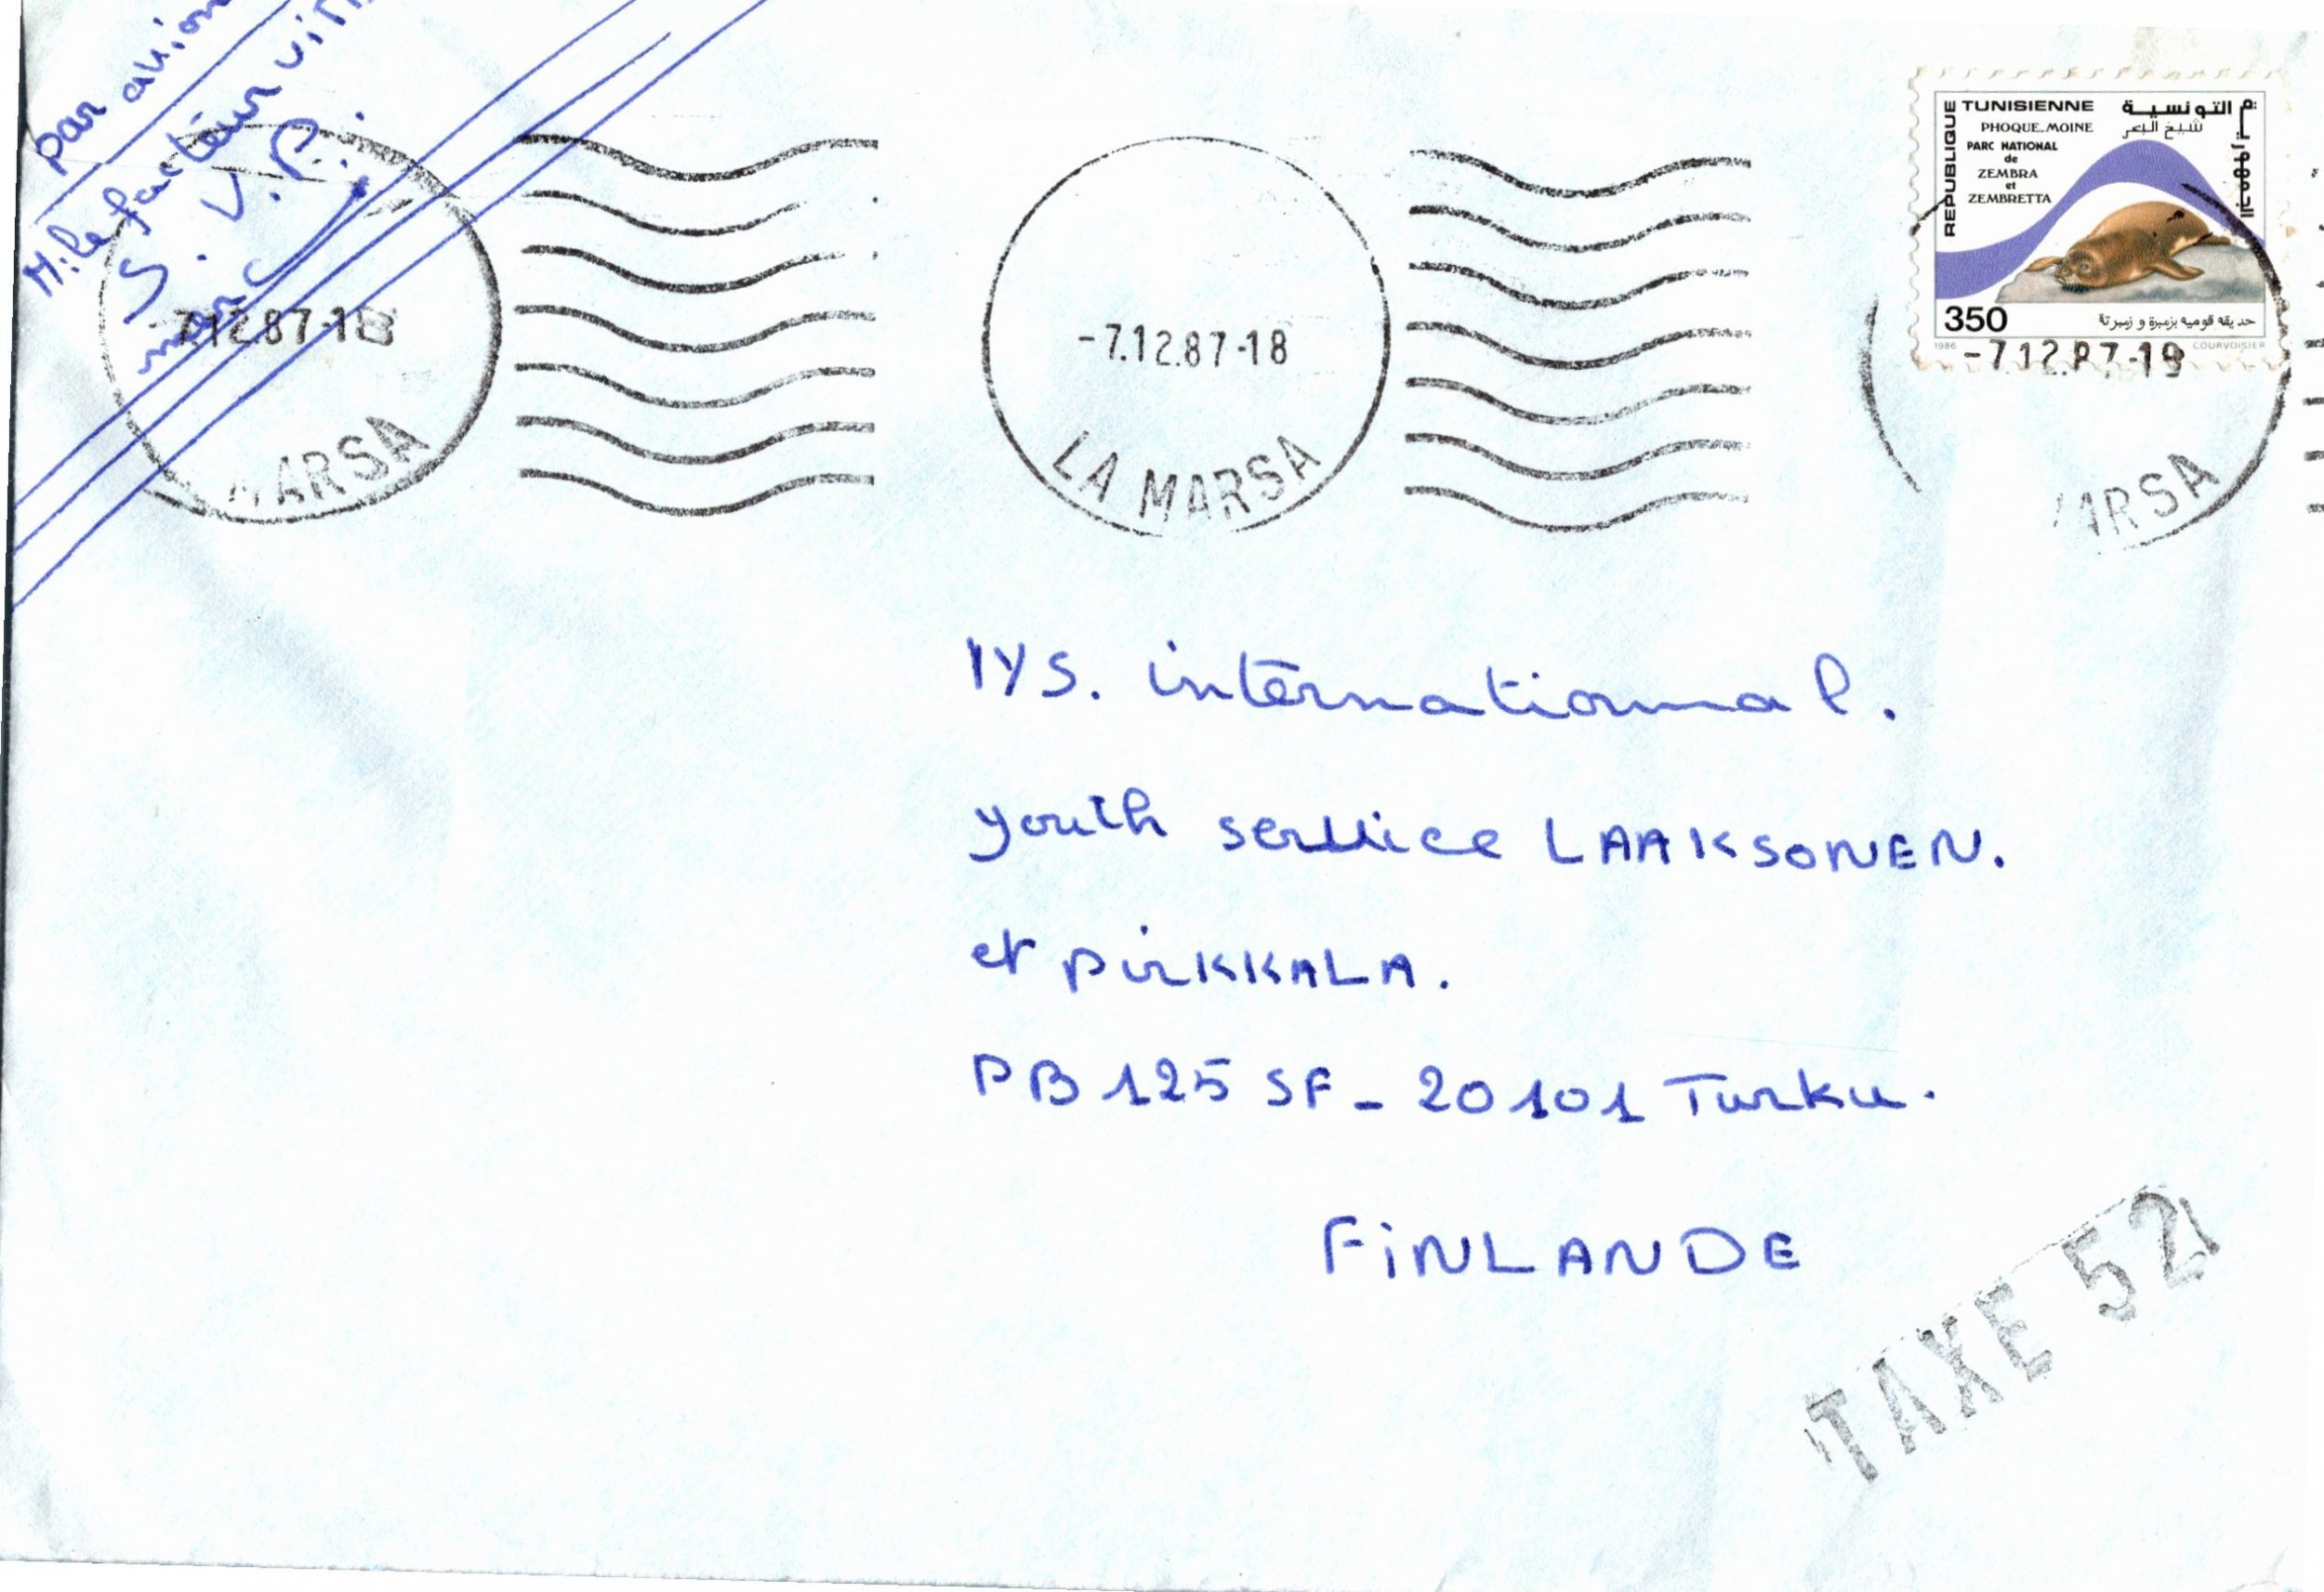 par avion
M. le facteur vit
S. V. P.
merci
-7.12.87-18
MARSA
-7.12.87-18
LA MARSA
REPUBLIQUE TUNISIENNE
الجمهورية التونسية
PHOQUE-MOINE
شيخ البحر
PARC NATIONAL
de
ZEMBRA
et
ZEMBRETTA
350
حديقه قوميه بزمبرة و زمبرتة
1986
COURVOISIER
-7.12.87-19
MARSA
IYS. internationnal.
youth service LAAKSONEN.
et PirKKALA.
PB 125 SF-20101 Turku.
FiNLANDE
TAXE 52